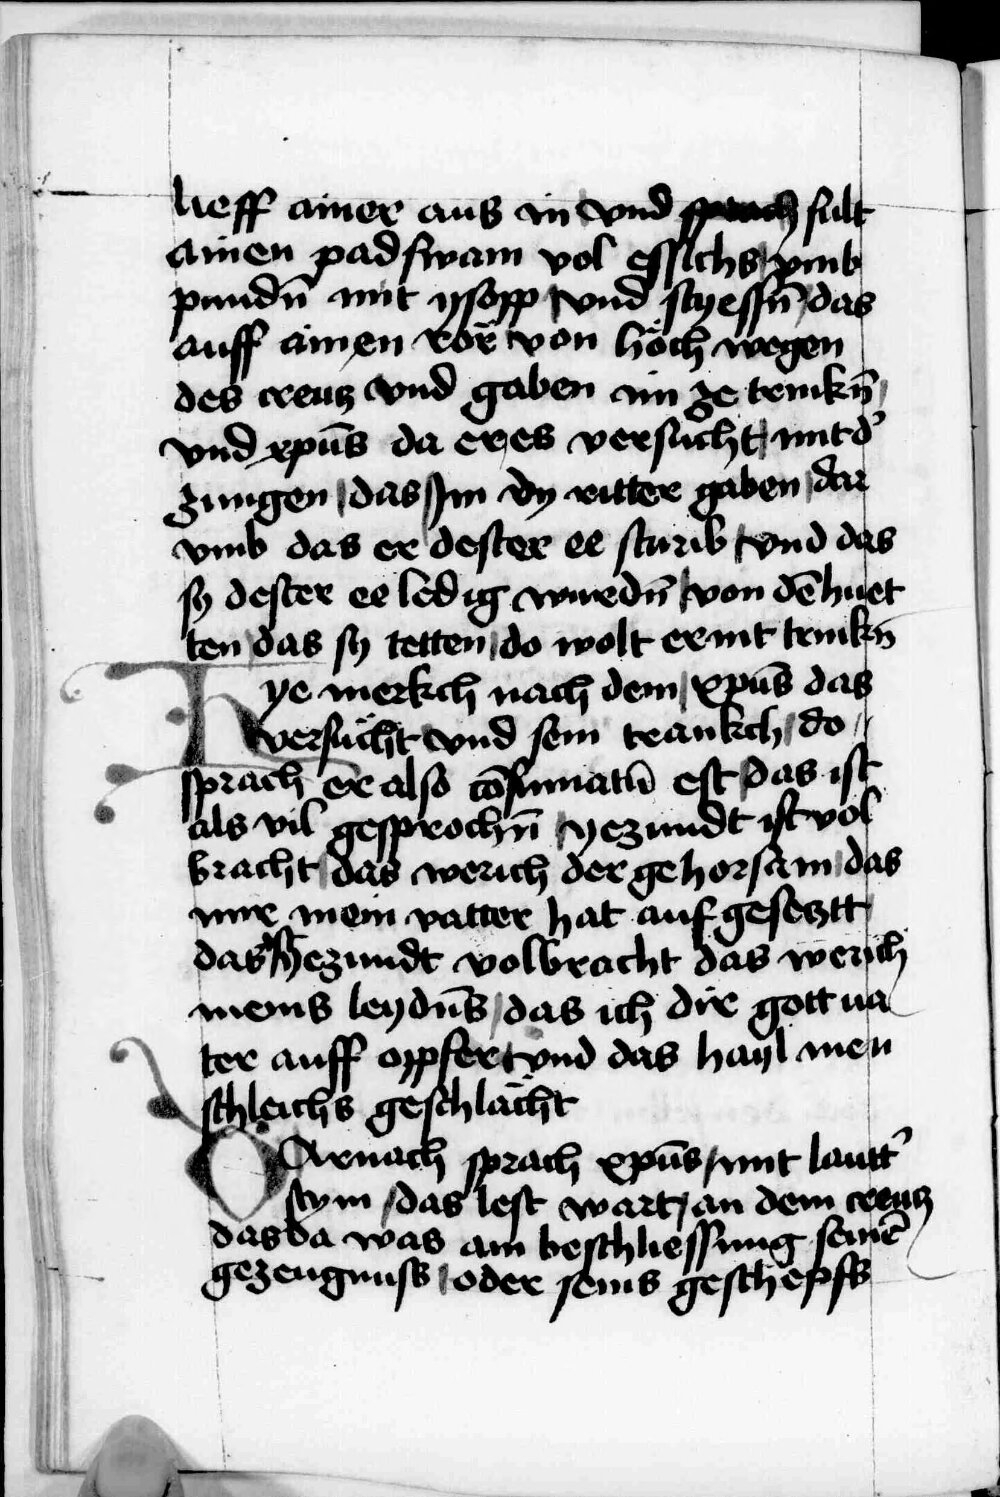 lieff ainer aus in vnd fult
ainen padswam vol essichs vmb
pundn̄ mit ysopp vnd styessn̄ das
auff ainen rör von höch wegen
des creutz vnd gaben im ze trinkn̄
vnd xpūs da er es versücht mit d'
zungen das Im dy ritter gaben dar
vmb das er dester ee sturib vnd das
sy dester ee ledig wurdn̄ von dē huet
ten das sy tetten do wolt er nit trinkn̄
Hye merkch nach dem xpūs das
versücht vnd sein trankch do
sprach er also cōsumatū est das ist
als vil gesprochn̄ yezundt ist vol
bracht das werich der gehorsam das
mir mein vatter hat auf gesetztt
das yezundt volbracht das werich
meins leydūs das ich dir gott va
ter auff oppfer vnd das hayl men
schleichs geschlächt
Darnach sprach xpūs mit lautt'
stym das lest wart an dem creutz
das da was ain beschliessung seinē
gezeugnuss oder seins geschepfs